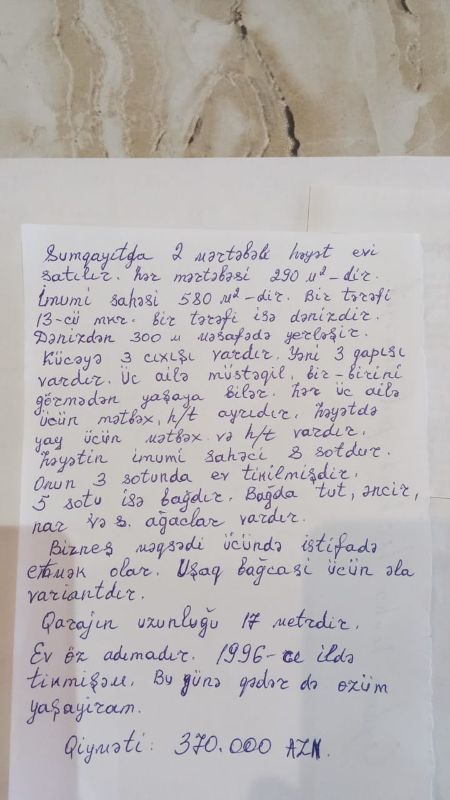 Sumqayıtda 2 mərtəbəli həyət evi
satılır. hər mərtəbəsi 290 м²-dir.
İmumi sahəsi 580 м²-dir. Bir tərəfi
13-cü мкr. bir tərəfi isə dənizdir.
Dənizdən 300 м məsafədə yerləşir.
Küçəyə 3 cıxışı vardır. Yəni 3 qapısı
vardır. Üc ailə müstəqil, bir-birini
görmədən yaşaya bilər. hər üc ailə
ücün mətbəx, h/t ayrıdır. həyətdə
yay ücün mətbəx və h/t vardır.
həyətin imumi sahəci 8 sotdur.
Onun 3 sotunda ev tikilmişdir.
5 sotu isə bağdır. Bağda tut, əncir,
nar və s. ağaclar vardır.
Biznes məqsədi ücündə istifadə
etmək olar. Uşaq bağcasi ücün əla
variantdır.
Qarajın uzunluğu 17 metrdir.
Ev öz adımadır. 1996-cı ildə
tikmişəm. Bu günə qədər də özüm
yaşayiram.
Qiyməti: 370.000 AZN.